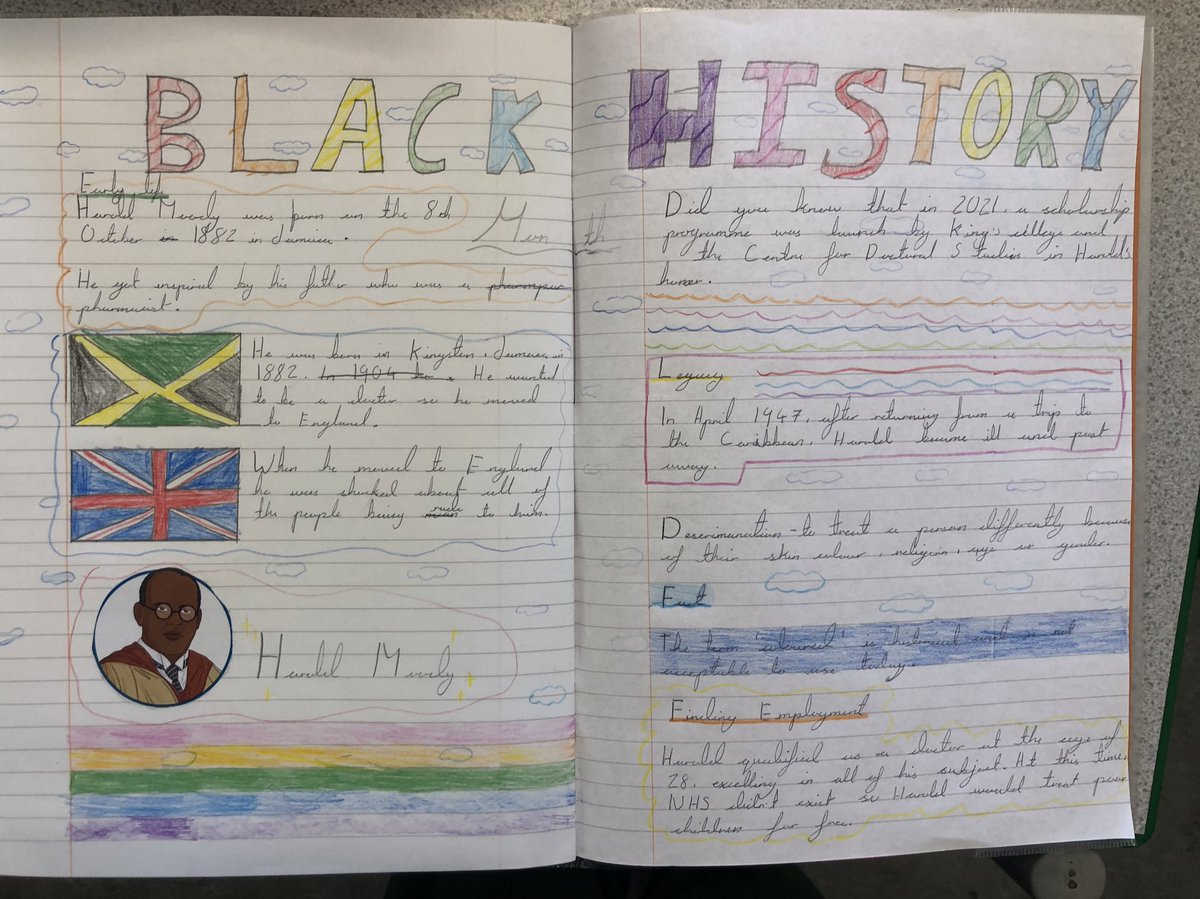 BLACK HISTORY
Month
Early life
Harold Moody was born on the 8th
October in 1882 in Jamaica.
He got inspired by his father who was a
pharmacist.
He was born in Kingston, Jamaica in
1882. In 1904 He wanted
to be a doctor so he moved
to England.
When he moved to England
he was shocked about all of
the people being rude to him.
Harold Moody
Did you know that in 2021, a scholarship
programme was launch by King's college and
the Centre for Doctoral Studies in Harold's
honor.
Legacy
In April 1947, after returning from a trip to
the Caribbean, Harold became ill and past
away.
Descrimanation - to treat a person differently because
of their skin colour, religion, age or gender.
Fact
The term 'coloured' is historical and is not
acceptable to use today.
Finding Employment
Harold qualified as a doctor at the age of
28, excelling in all of his subject. At this time,
NHS didn't exist so Harold would treat poor
children for free.